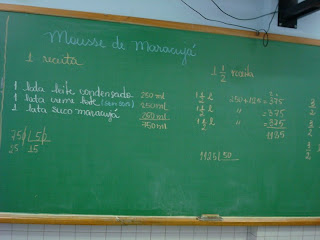 Mousse de Maracujá
1 receita
1 1/2 receita
1 lata leite condensado 250 ml
1 lata creme leite (sem soro) 250 ml
1 lata suco maracujá 250 ml
750 ml
1 1/2 l 250+125 = 375
1 1/2 l " = 375
1 1/2 l " = 375
1125
750 | 50
25 15
1125 | 50
3/2
3/2
3/2